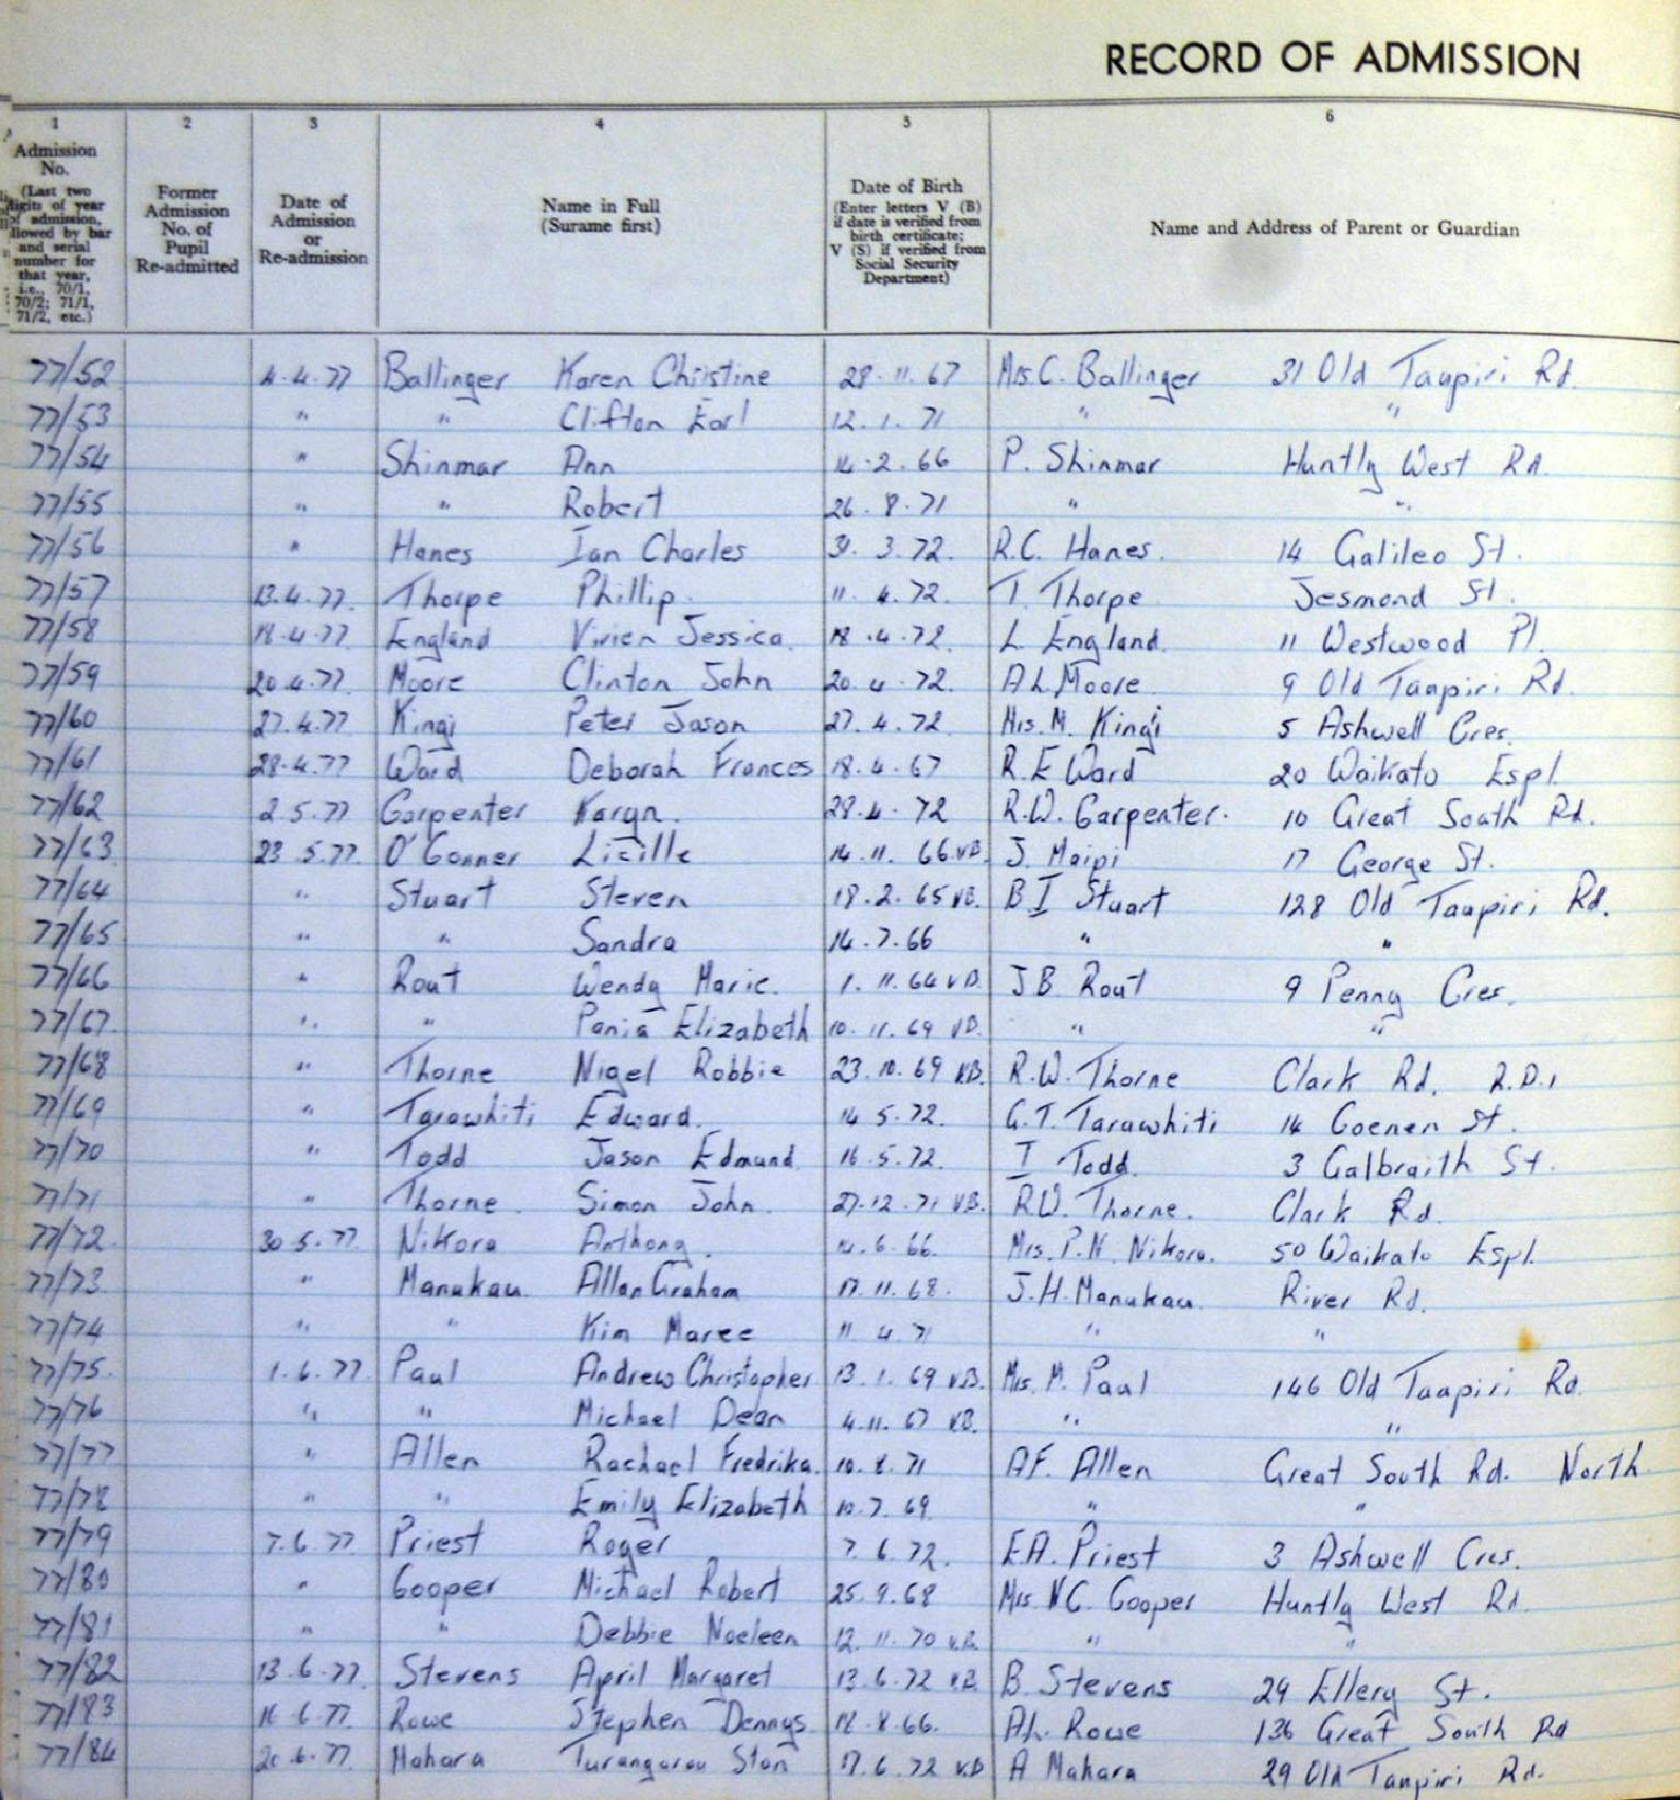 RECORD OF ADMISSION
1 2 3 4 5 6
Admission No. (Last two digits of year of admission, followed by bar and serial number for that year, i.e., 70/1, 70/2; 71/1, 71/2, etc.)
Former Admission No. of Pupil Re-admitted
Date of Admission or Re-admission
Name in Full (Surame first)
Date of Birth (Enter letters V (B) if date is verified from birth certificate; V (S) if verified from Social Security Department)
Name and Address of Parent or Guardian
77/52 4.4.77 Ballinger Karen Christine 28.11.67 Mrs. C. Ballinger 31 Old Taupiri Rd.
77/53 " " Clifton Earl 12.1.71 " "
77/54 " Shinmar Ann 14.2.66 P. Shinmar Huntly West Rd.
77/55 " " Robert 26.8.71 " "
77/56 " Hanes Ian Charles 31.3.72. R.C. Hanes. 14 Galileo St.
77/57 13.4.77. Thorpe Phillip. 11.4.72. T. Thorpe Jesmond St.
77/58 18.4.77. England Vivien Jessica. 18.4.72. L. England. 11 Westwood Pl.
77/59 20.4.77. Moore Clinton John 20.4.72. A L Moore 9 Old Taupiri Rd.
77/60 27.4.77 Kingi Peter Jason 27.4.72 Mrs. M. Kingi 5 Ashwell Cres.
77/61 28.4.77 Ward Deborah Frances 18.4.67 R. E Ward 20 Waikato Espl.
77/62 2.5.77 Carpenter Karyn. 28.4.72 R.W. Carpenter. 10 Great South Rd.
77/63 23.5.77. O'Conner 14.11.66 V.B. J. Maipi 17 George St.
77/64 " Stuart Steven 18.2.65 V.B. B I Stuart 128 Old Taupiri Rd.
77/65 " " Sandra 14.7.66 " "
77/66 " Rout Wendy Marie. 1.11.64 V B. J B Rout 9 Penny Cres.
77/67. " " Pania Elizabeth 10.11.69 V B. " "
77/68 " Thorne Nigel Robbie 23.10.69 V.B. R.W. Thorne Clark Rd. R.D.1
77/69 " Tarawhiti Edward. 14.5.72. G.T. Tarawhiti 14 Coenen St.
77/70 " Todd Jason Edmund 16.5.72. I Todd. 3 Galbraith St.
77/71 " Thorne. Simon John. 27.12.71 V.B. R.W. Thorne. Clark Rd.
77/72. 30.5.77. Nikora Anthony. 14.6.66. Mrs. P.N. Nikora. 50 Waikato Espl.
77/73 " Manukau. Allan Graham 17.11.68. J.H. Manukau. River Rd.
77/74 " " Kim Maree 11.4.71 " "
77/75. 1.6.77. Paul Andrew Christopher 13.1.69 V.B. Mrs. M. Paul 146 Old Taupiri Rd.
77/76 " " Michael Dean 4.11.67 V.B. " "
77/77 " Allen Rachael Fredrika. 10.8.71 A.F. Allen Great South Rd. North
77/78 " " Emily Elizabeth 10.7.69. " "
77/79 7.6.77 Priest Roger 7.6.72. E.A. Priest 3 Ashwell Cres.
77/80 " Cooper Michael Robert 25.9.68 Mrs. N C. Cooper Huntly West Rd.
77/81 " " Debbie Noeleen 12.11.70 V.B. " "
77/82 13.6.77. Stevens April Margaret 13.6.72 V.B. B. Stevens 29 Ellery St.
77/83 16.6.77. Rowe Stephen Dennys 18.8.66. A.L. Rowe 136 Great South Rd
77/84 20.6.77. Mahara Stan 17.6.72 V.B A Mahara 29 Old Taupiri Rd.